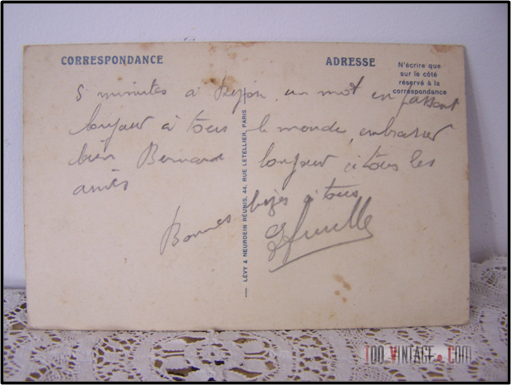 CORRESPONDANCE
ADRESSE
N'écrire que
sur le côté
réservé à la
correspondance
5 minutes à Dijon un mot en passant
bonjour à tous le monde, embrasser
bien Bernard bonjour à tous les
amis
Bonnes bizes à tous
LÉVY & NEURDEIN RÉUNIS, 44, RUE LETELLIER, PARIS
Too Vintage.Com